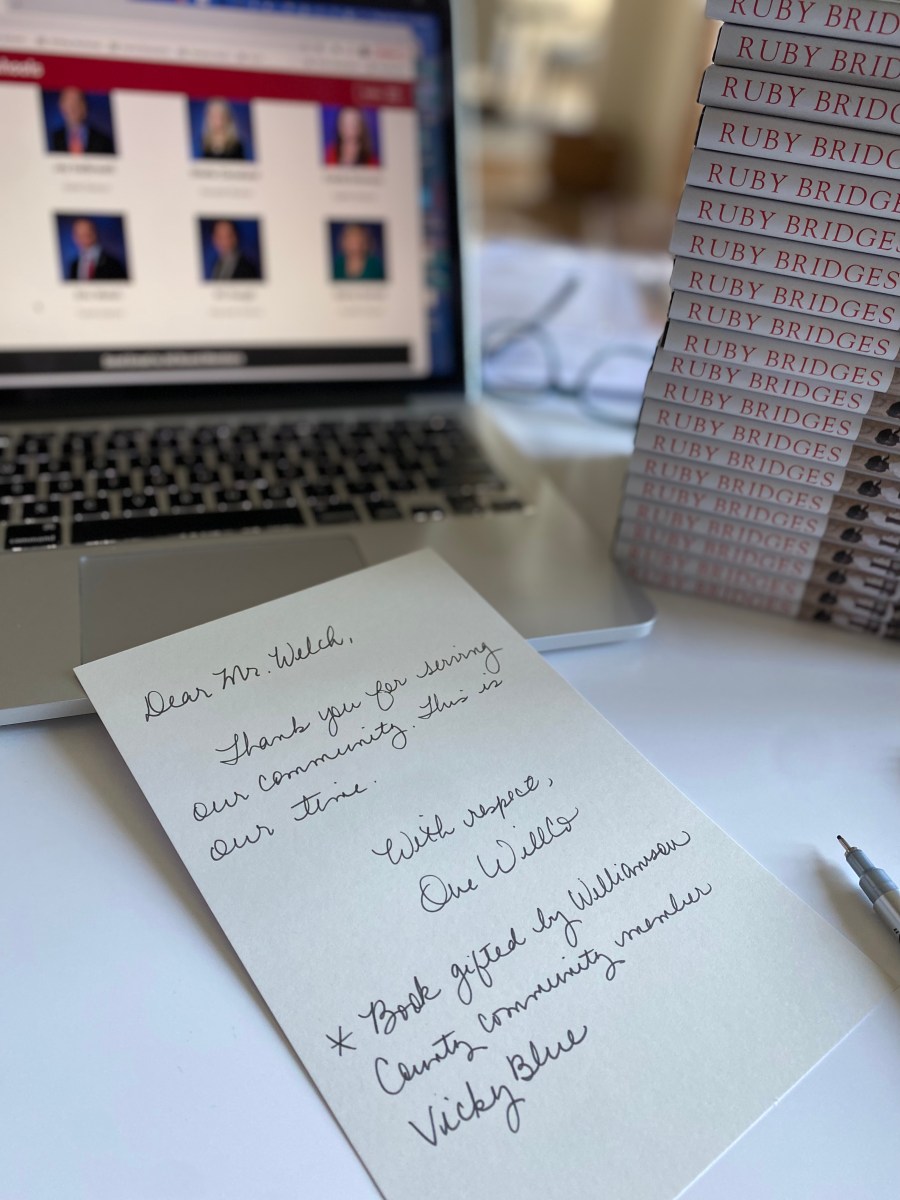 RUBY BRID
RUBY BRID
RUBY BRIDG
RUBY BRIDG
RUBY BRIDGE
RUBY BRIDGES
RUBY BRIDGES
RUBY BRIDGES
RUBY BRIDGES
RUBY BRIDGES
RUBY BRIDGES
RUBY BRIDGES
RUBY BRIDGES
RUBY BRIDGES
RUBY BRIDGES
RUBY BRIDGES
RUBY BRIDGES
RUBY BRIDGES
RUBY BRIDGES
Dear Mr. Welch,
Thank you for serving
our community. This is
our time.
With respect,
One WillCo
* Book gifted by Williamson
County community member
Vicky Blue